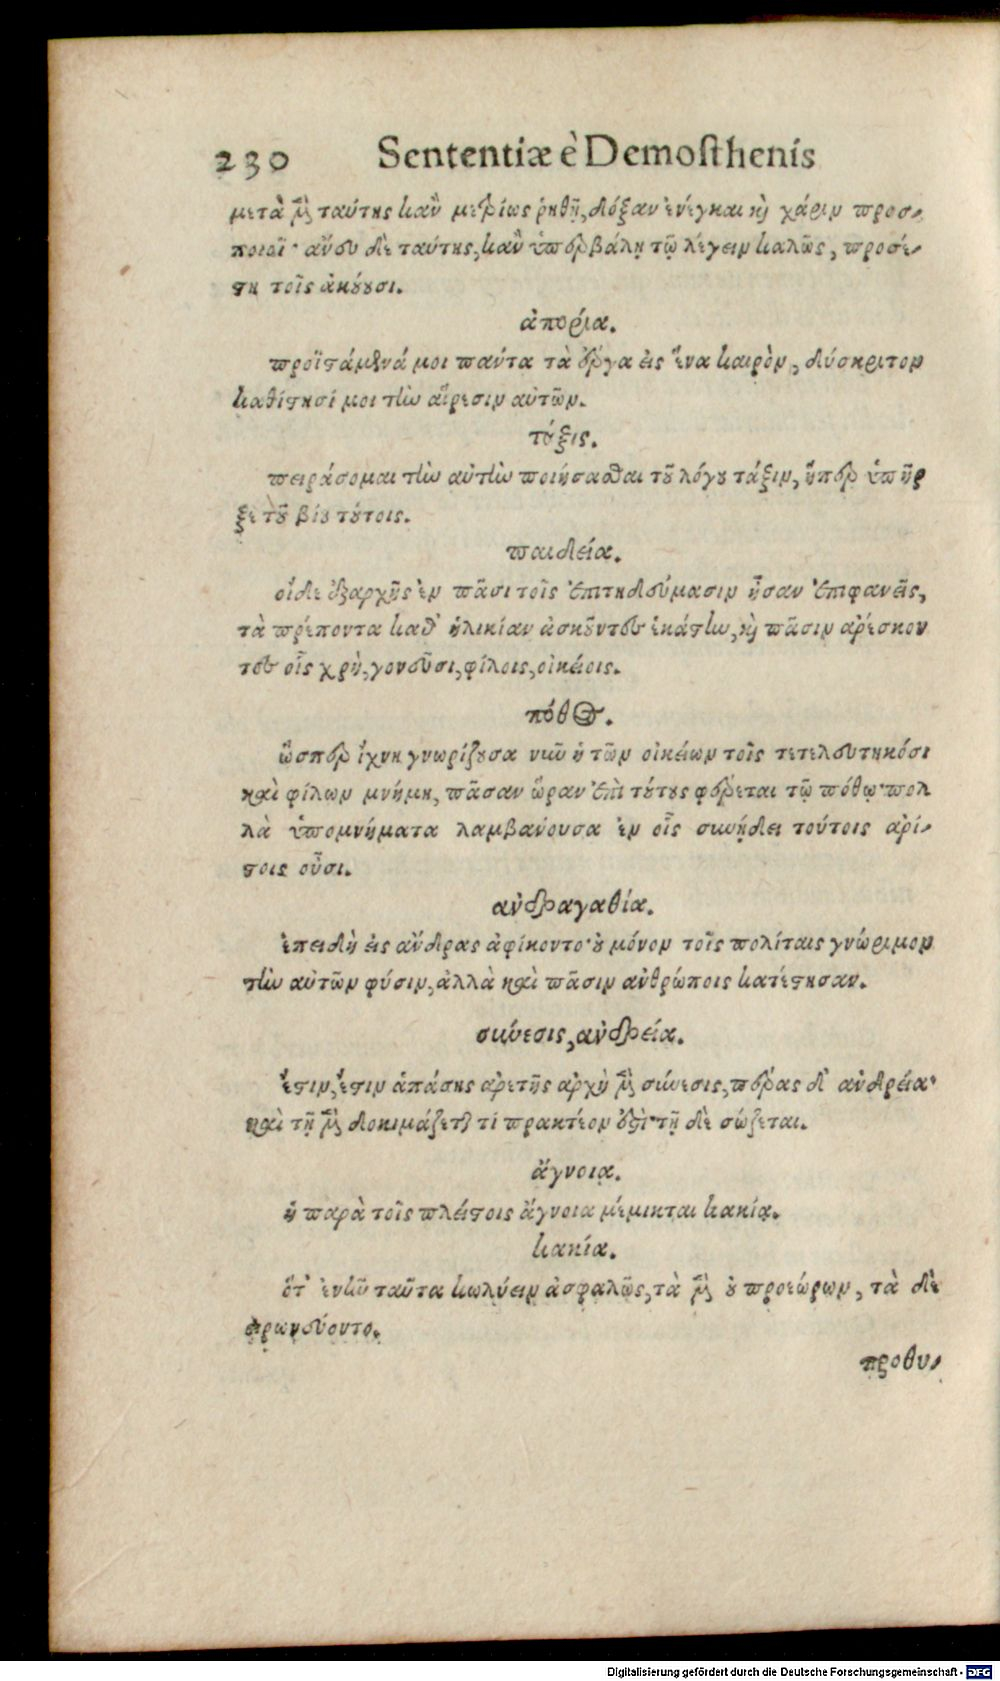 230 Sententiæ è Demosthenis
μετὰ μὲν ταύτης κἂν μετρίως ῥηθῇ, δόξαν ἐνέγκαι καὶ χάριν προσ-
ποιεῖ· ἄνευ δὲ ταύτης, κἂν ὑπερβάλῃ τῷ λέγειν καλῶς, προσέ-
στη τοῖς ἀκούουσι.
ἀπορία.
προϊστάμενά μοι πάντα τὰ ἔργα εἰς ἕνα καιρὸν, δύσκριτον
καθίστησί μοι τὴν αἵρεσιν αὐτῶν.
τάξις.
πειράσομαι τὴν αὐτὴν ποιήσασθαι τοῦ λόγου τάξιν, ἥπερ ὑπῆρ
ξε τοῦ βίου τούτοις.
παιδεία.
οἵδε ἐξαρχῆς ἐν πᾶσι τοῖς ἐπιτηδεύμασιν ἦσαν ἐπιφανεῖς,
τὰ πρέποντα καθ᾽ ἡλικίαν ἀσκοῦντες ἑκάστην, καὶ πᾶσιν ἀρέσκον
τες οἷς χρὴ, γονεῦσι, φίλοις, οἰκείοις.
πόθος.
ὥσπερ ἴχνη γνωρίζουσα νῦν ἡ τῶν οἰκείων τοῖς τετελευτηκόσι
καὶ φίλων μνήμη, πᾶσαν ὥραν ἐπὶ τούτους φέρεται τῷ πόθῳ· πολ
λὰ ὑπομνήματα λαμβάνουσα ἐν οἷς συνῄδει τούτοις ἀρί-
στοις οὖσι.
ἀνδραγαθία.
ἐπειδὴ εἰς ἄνδρας ἀφίκοντο· οὐ μόνον τοῖς πολίταις γνώριμον
τὴν αὐτῶν φύσιν, ἀλλὰ καὶ πᾶσιν ἀνθρώποις κατέστησαν.
σύνεσις, ἀνδρεία.
ἔστιν, ἔστιν ἁπάσης ἀρετῆς ἀρχὴ μὲν σύνεσις, πέρας δ᾽ ἀνδρεία·
καὶ τῇ μὲν δοκιμάζεται τί πρακτέον ἐστὶ· τῇ δὲ σώζεται.
ἄγνοια.
ἡ παρὰ τοῖς πλείστοις ἄγνοια μέμικται κακίᾳ.
κακία.
ὅτ᾽ ἐνῆν ταῦτα κωλύειν ἀσφαλῶς, τὰ μὲν οὐ προεώρων, τὰ δὲ
εἰρωνεύοντο.
προθυ-
Digitalisierung gefördert durch die Deutsche Forschungsgemeinschaft - DFG